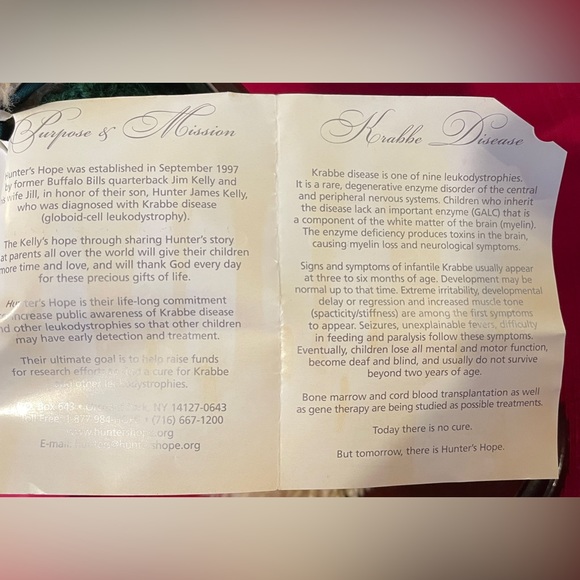 Purpose & Mission
Hunter's Hope was established in September 1997
by former Buffalo Bills quarterback Jim Kelly and
wife Jill, in honor of their son, Hunter James Kelly,
who was diagnosed with Krabbe disease
(globoid-cell leukodystrophy).
The Kelly's hope through sharing Hunter's story
parents all over the world will give their children
more time and love, and will thank God every day
for these precious gifts of life.
Hunter's Hope is their life-long commitment
increase public awareness of Krabbe disease
and other leukodystrophies so that other children
may have early detection and treatment.
Their ultimate goal is to help raise funds
for research efforts a cure for Krabbe
other leukodystrophies.
NY 14127-0643
(716) 667-1200
E-mail:
Krabbe Disease
Krabbe disease is one of nine leukodystrophies.
It is a rare, degenerative enzyme disorder of the central
and peripheral nervous systems. Children who inherit
the disease lack an important enzyme (GALC) that is
a component of the white matter of the brain (myelin).
The enzyme deficiency produces toxins in the brain,
causing myelin loss and neurological symptoms.
Signs and symptoms of infantile Krabbe usually appear
at three to six months of age. Development may be
normal up to that time. Extreme irritability, developmental
delay or regression and increased muscle tone
(spacticity/stiffness) are among the first symptoms
to appear. Seizures, unexplainable fevers, difficulty
in feeding and paralysis follow these symptoms.
Eventually, children lose all mental and motor function,
become deaf and blind, and usually do not survive
beyond two years of age.
Bone marrow and cord blood transplantation as well
as gene therapy are being studied as possible treatments.
Today there is no cure.
But tomorrow, there is Hunter's Hope.